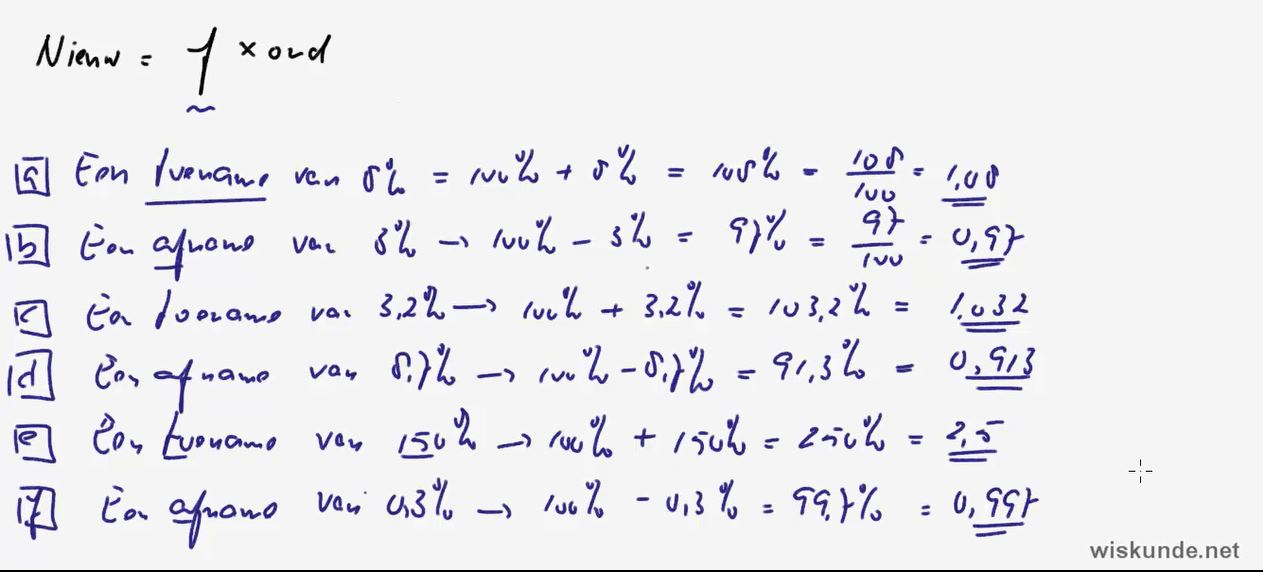 Nieuw = f × oud
a Een toename van 8% = 100% + 8% = 108% = 108/100 = 1,08
b Een afname van 3% → 100% - 3% = 97% = 97/100 = 0,97
c Een toename van 3,2% → 100% + 3,2% = 103,2% = 1,032
d Een afname van 8,7% → 100% - 8,7% = 91,3% = 0,913
e Een toename van 150% → 100% + 150% = 250% = 2,5
f Een afname van 0,3% → 100% - 0,3% = 99,7% = 0,997
wiskunde.net